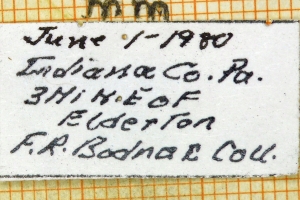 mm
June 1-1980
Indiana Co. Pa.
3 Mi N. E of
Elderton
F.R. Bodnar Coll.